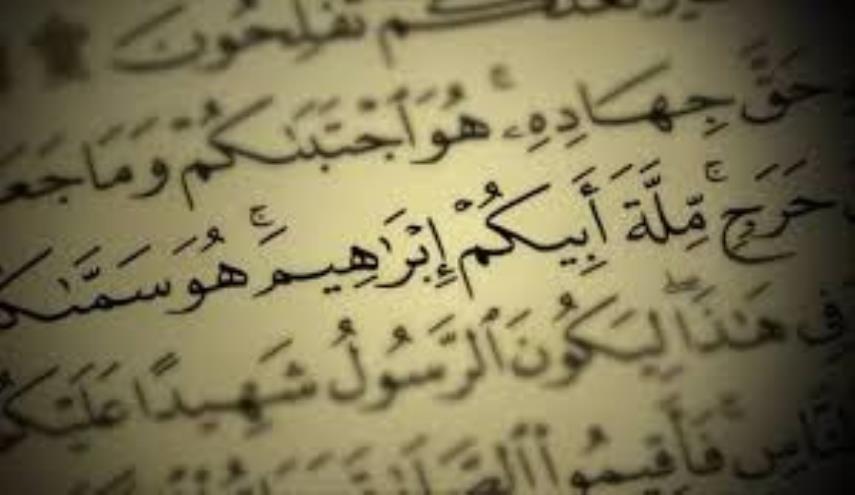 لَعَلَّكُمْ تُفْلِحُونَ
حَقَّ جِهَادِهِۦ ۚ هُوَ ٱجْتَبَىٰكُمْ وَمَا جَعَ
حَرَجٍ ۚ مِّلَّةَ أَبِيكُمْ إِبْرَٰهِيمَ ۚ هُوَ سَمَّىٰكُ
فِى هَـٰذَا لِيَكُونَ ٱلرَّسُولُ شَهِيدًا عَلَيْكُ
ٱلنَّاسِ ۚ فَأَقِيمُوا۟ ٱلصَّلَوٰةَ